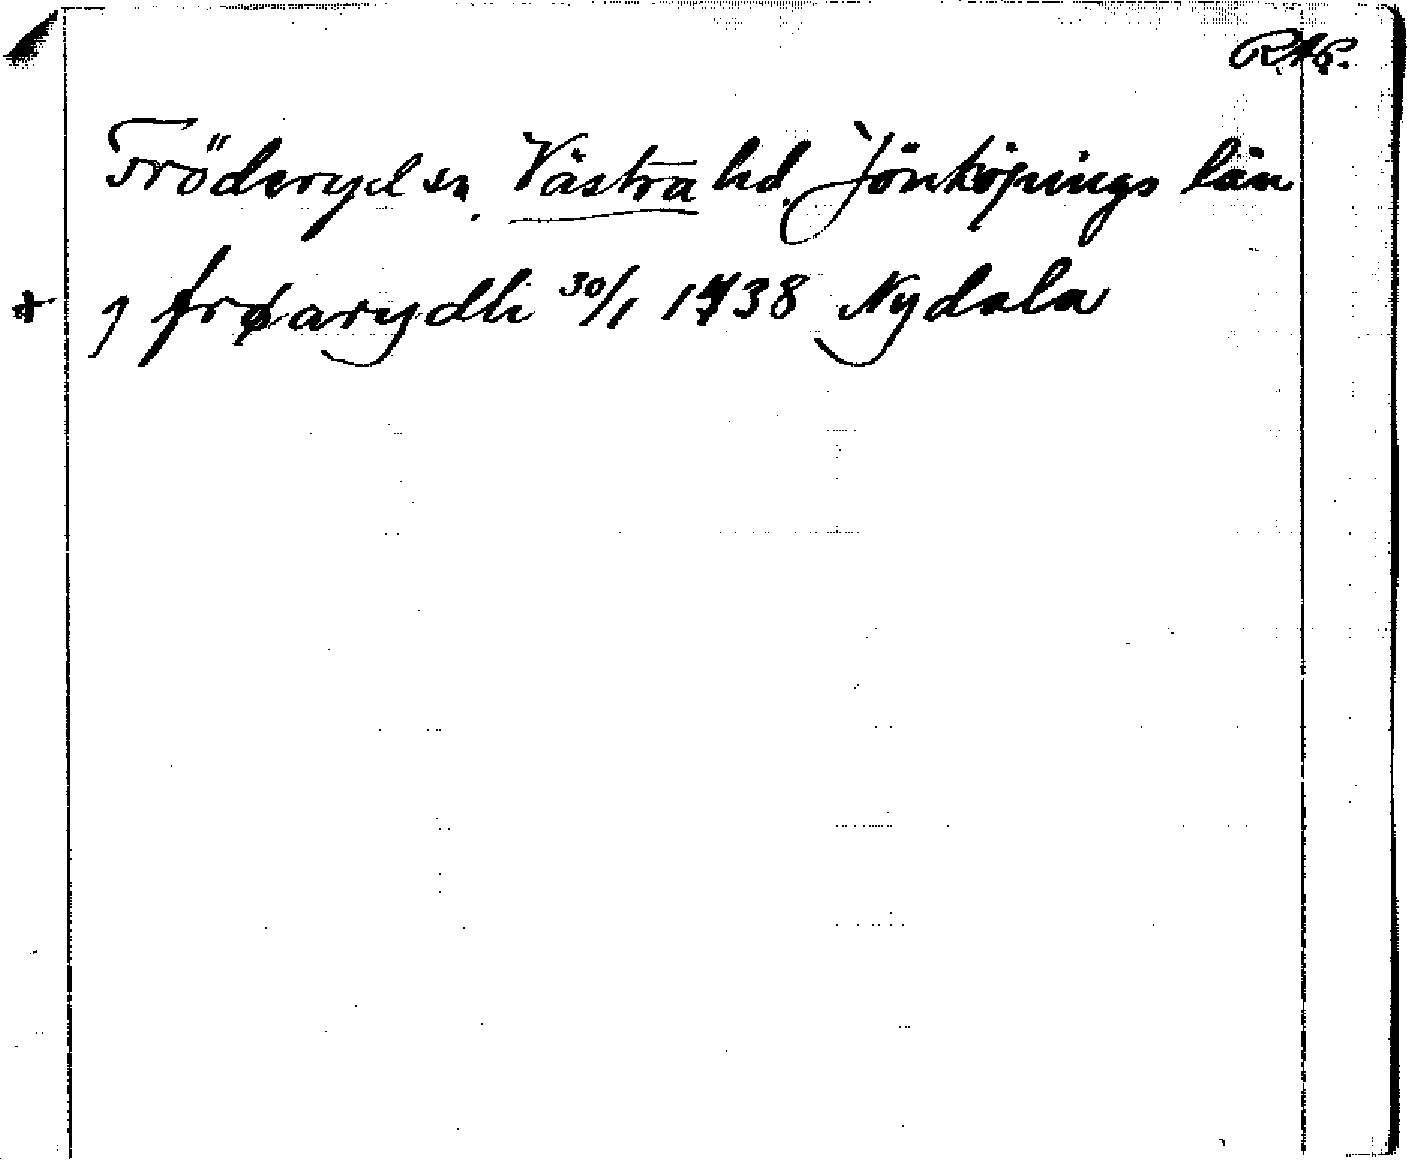 RAP.
Fröderyd sn. Västra hd. Jönköpings län
* j frøarydh 30/1 1438 Nydala